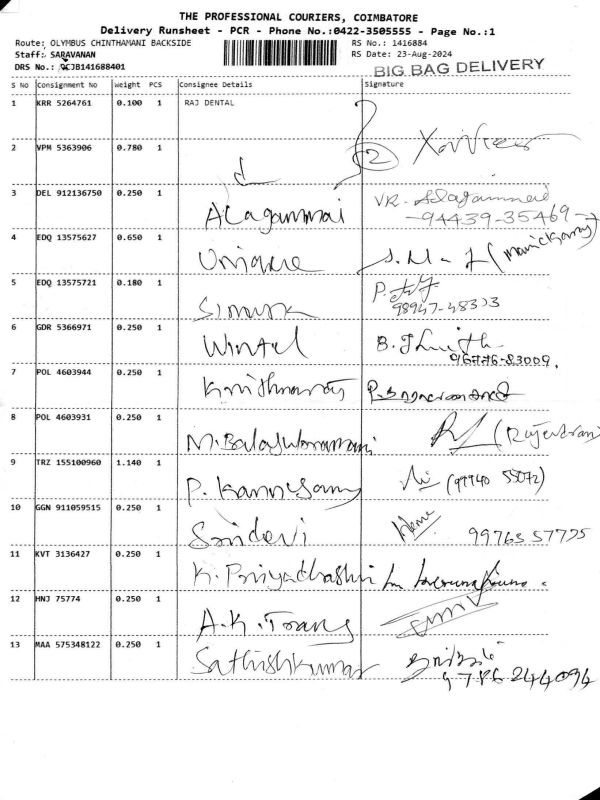 THE PROFESSIONAL COURIERS, COIMBATORE
Delivery Runsheet - PCR - Phone No.:0422-3505555 - Page No.:1
Route: OLYMBUS CHINTHAMANI BACKSIDE
RS No.: 1416884
Staff: SARAVANAN
RS Date: 23-Aug-2024
DRS No.: CJB141688401
BIG BAG DELIVERY
S No Consignment No Weight PCS Consignee Details Signature
1 KRR 5264761 0.100 1 RAJ DENTAL
2 VPM 5363906 0.780 1 2
3 DEL 912136750 0.250 1 ALagammai VR. Alagammai
94439-35469
4 EDQ 13575627 0.650 1 Unique
5 EDQ 13575721 0.180 1
6 GDR 5366971 0.250 1 Wintel
7 POL 4603944 0.250 1
8 POL 4603931 0.250 1 M.Balasubramani (Rajendran)
9 TRZ 155100960 1.140 1 P. Kannusamy (99940 55072)
10 GGN 911059515 0.250 1 Sridevi Hema
11 KVT 3136427 0.250 1 K. Priyadharshini
12 HNJ 75774 0.250 1 A.K.
13 MAA 575348122 0.250 1 Sathishkumar